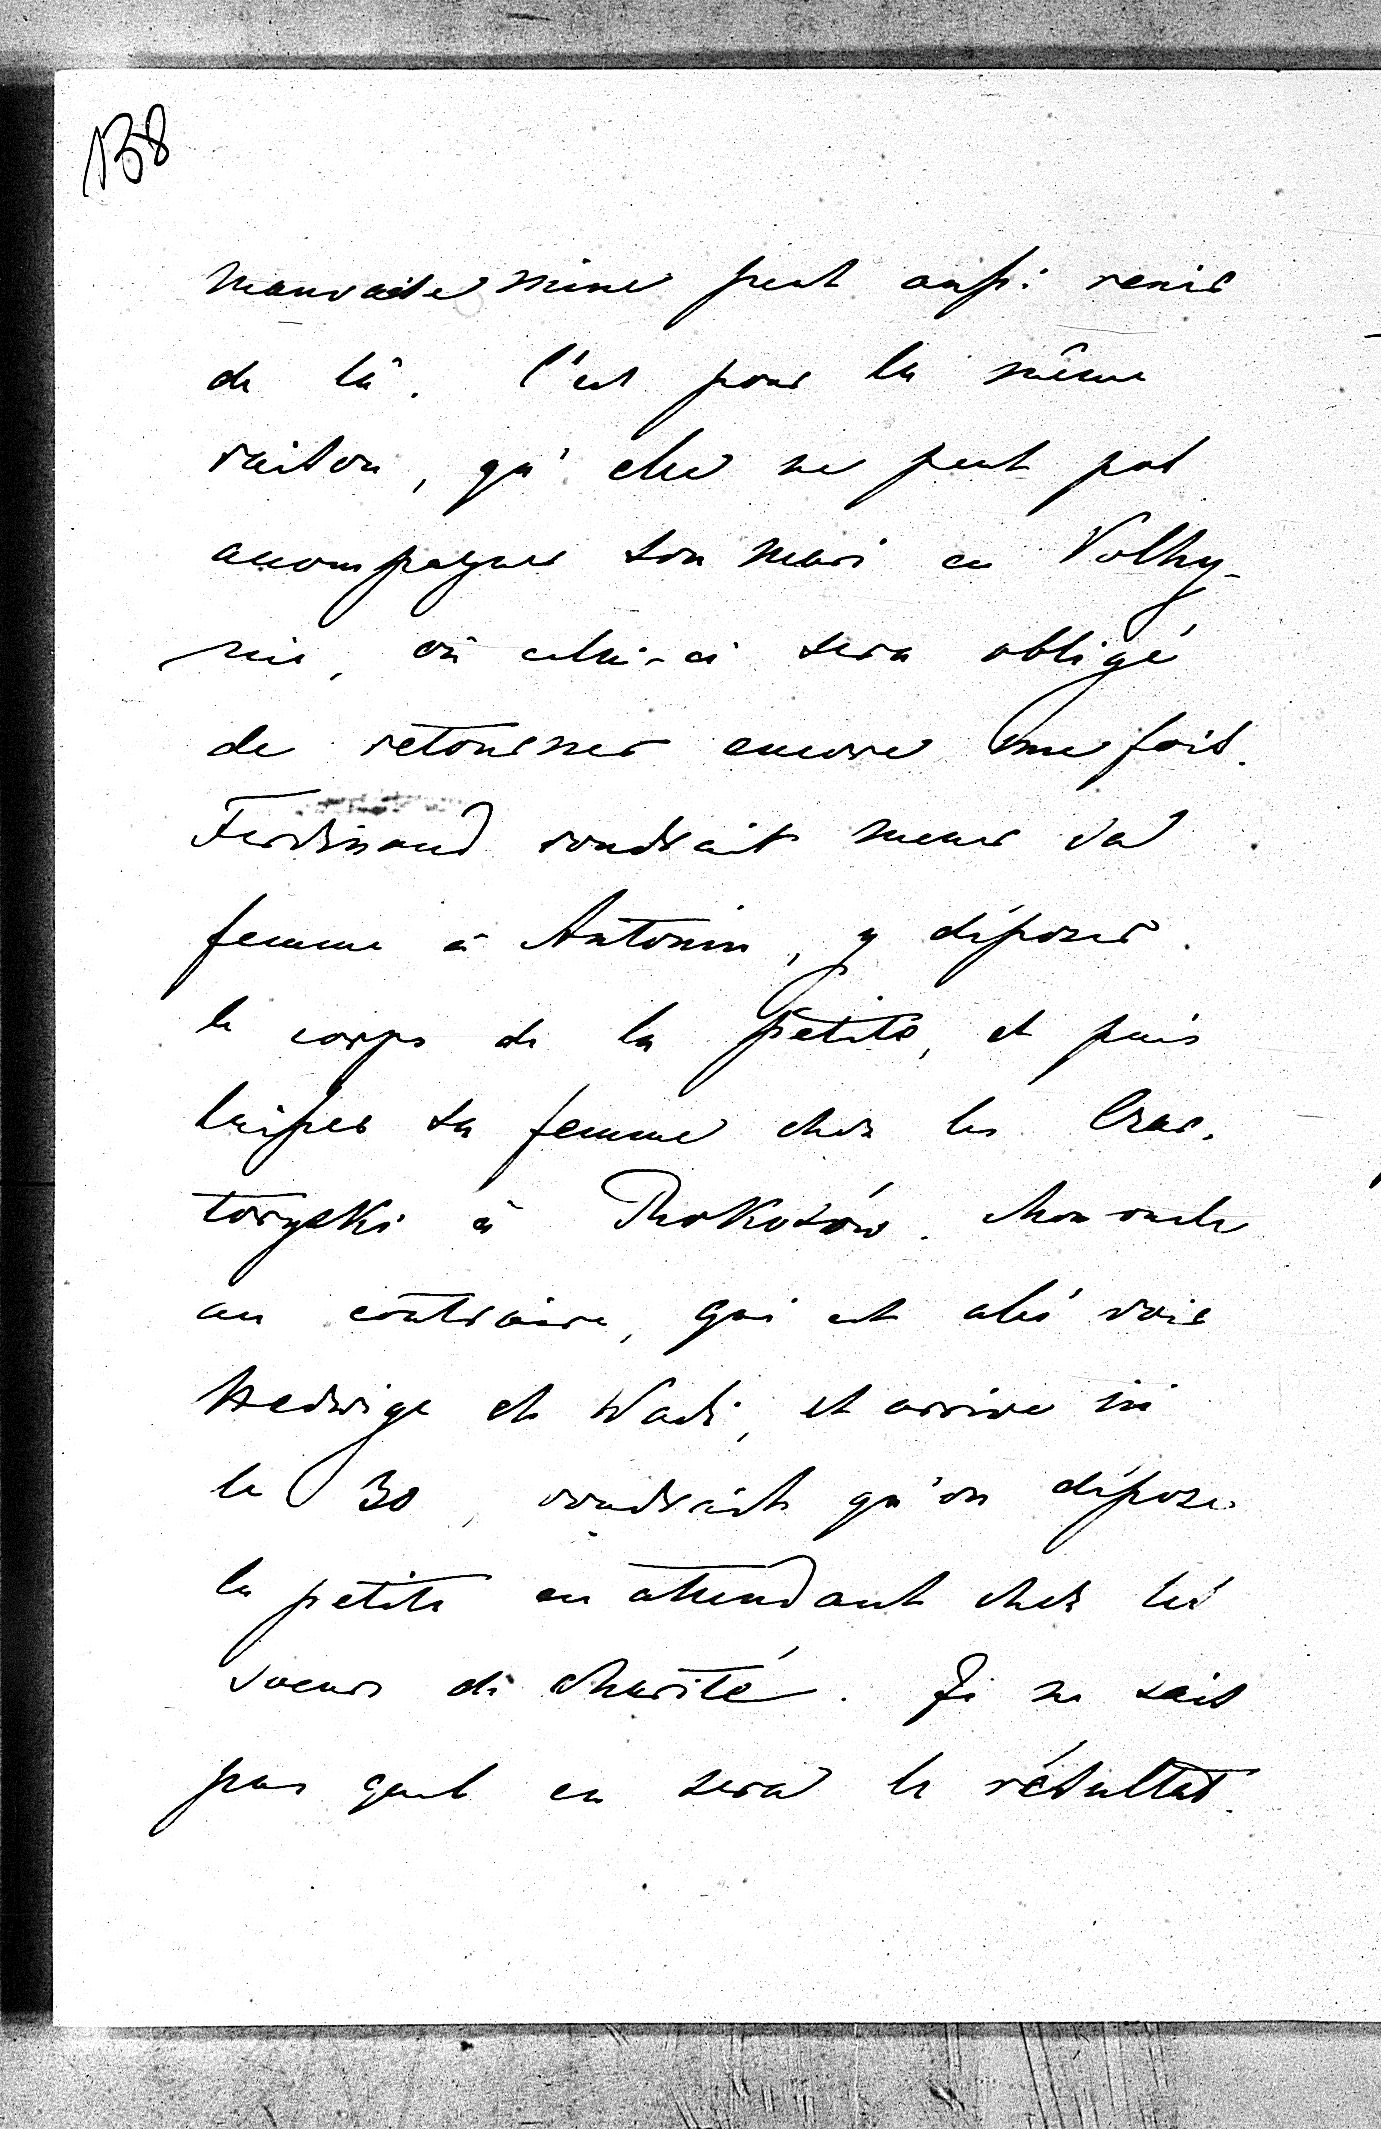 138
mauvaise mine peut aussi venir
de là. C'est pour la même
raison, qu'elle ne peut pas
accompagner son mari en Volhy-
nie, où celui-ci sera obligé
de retourner encore une fois.
Ferdinand voudrait mener sa
femme à Antonin, y déposer
le corps de la petite, et puis
laisser sa femme chez les Czar-
toryski à Rokosów. Mon oncle
au contraire, qui est allé voir
Hedwige et Wadi, et arrive ici
le 30, voudrait qu'on dépose
la petite en attendant chez les
soeurs de charité. Je ne sais
pas quel en sera le résultat.